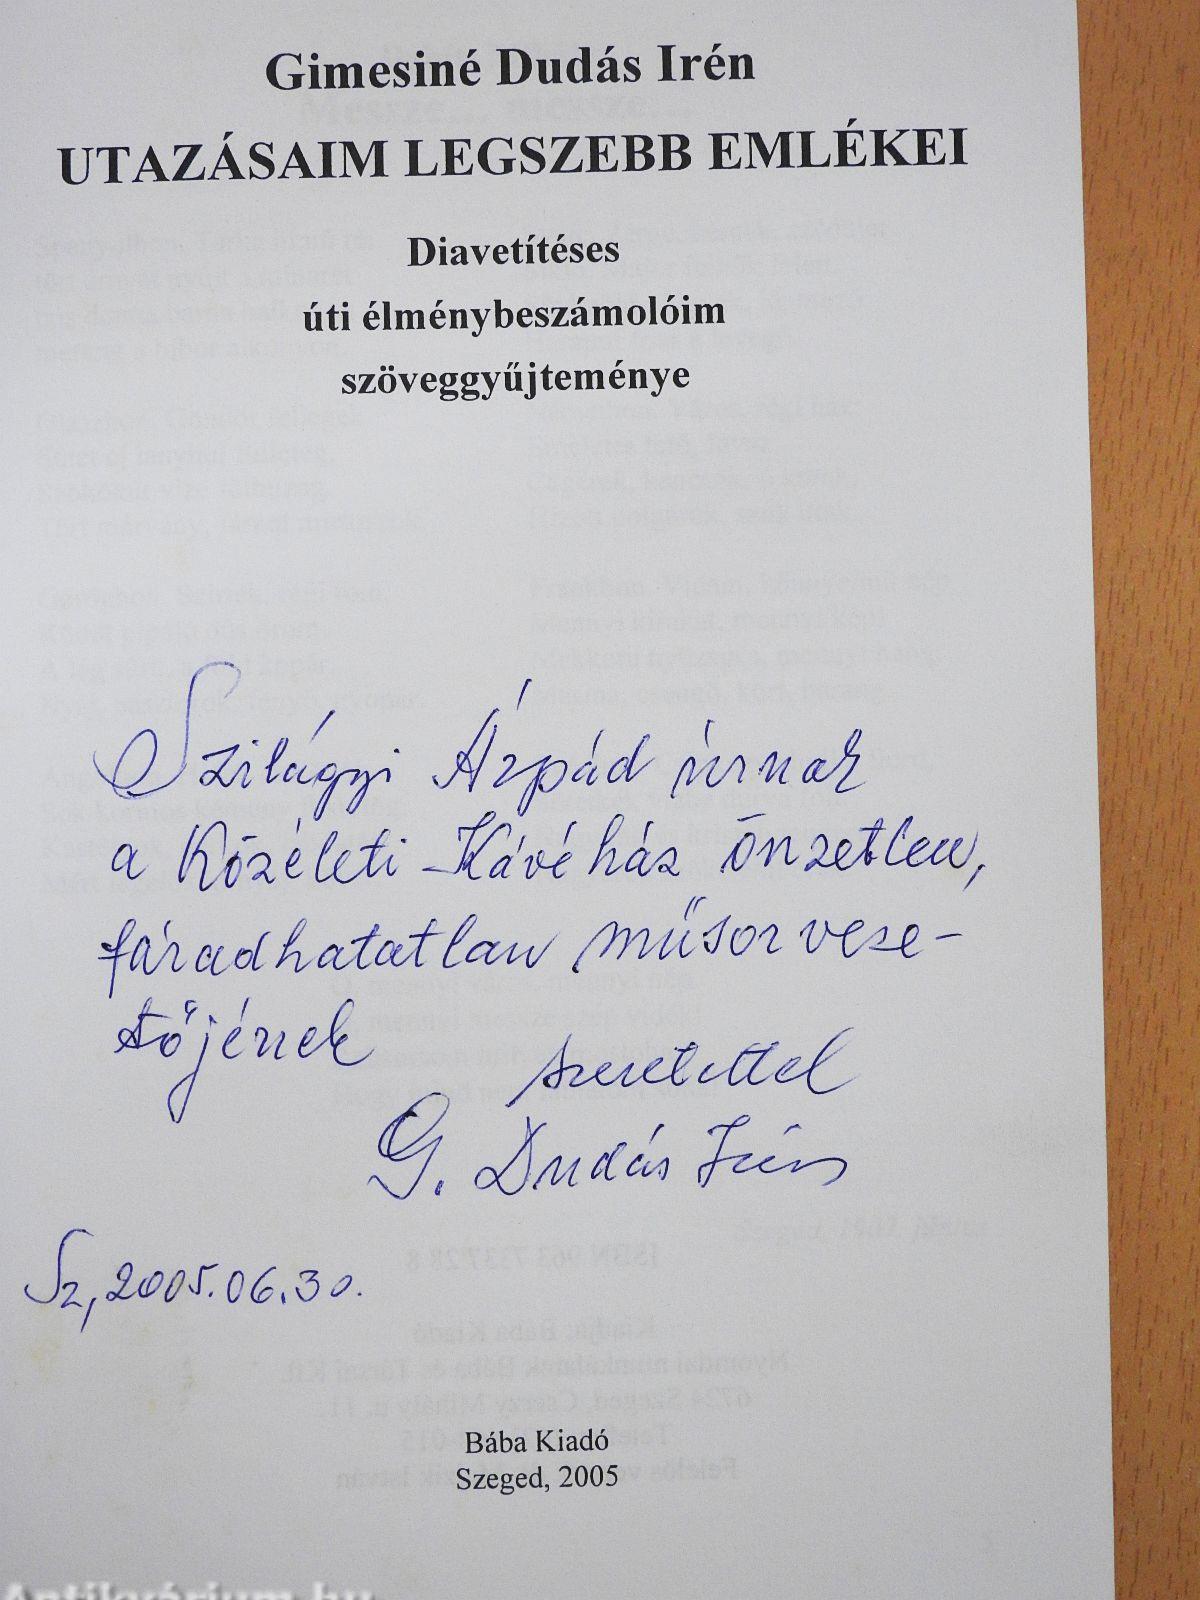 Gimesiné Dudás Irén
UTAZÁSAIM LEGSZEBB EMLÉKEI
Diavetítéses
úti élménybeszámolóim
szöveggyűjteménye
Szilágyi Árpád úrnak
a Közéleti Kávéház önzetlen,
fáradhatatlan műsorveze-
tőjének
szeretettel
G. Dudás Irén
Sz, 2005.06.30.
Bába Kiadó
Szeged, 2005
Antikvárium.hu